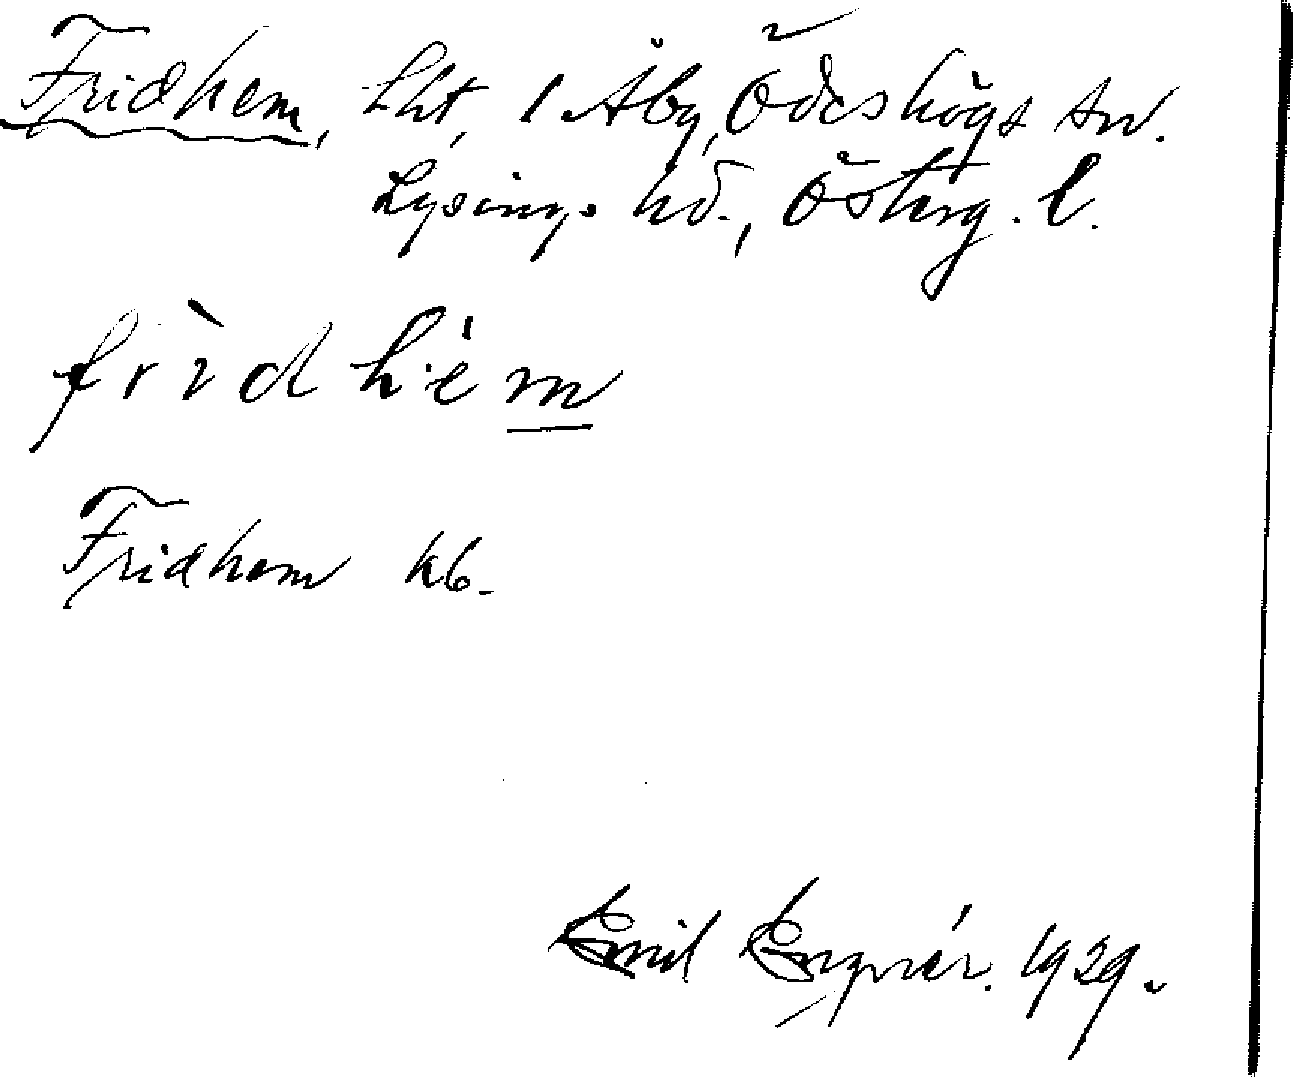 Fridhem, Lht, 1 Åby, Ödeshögs sn.
Lysings hd., Österg. l.
frìdhém
Fridhem kb.
Emil 1929.